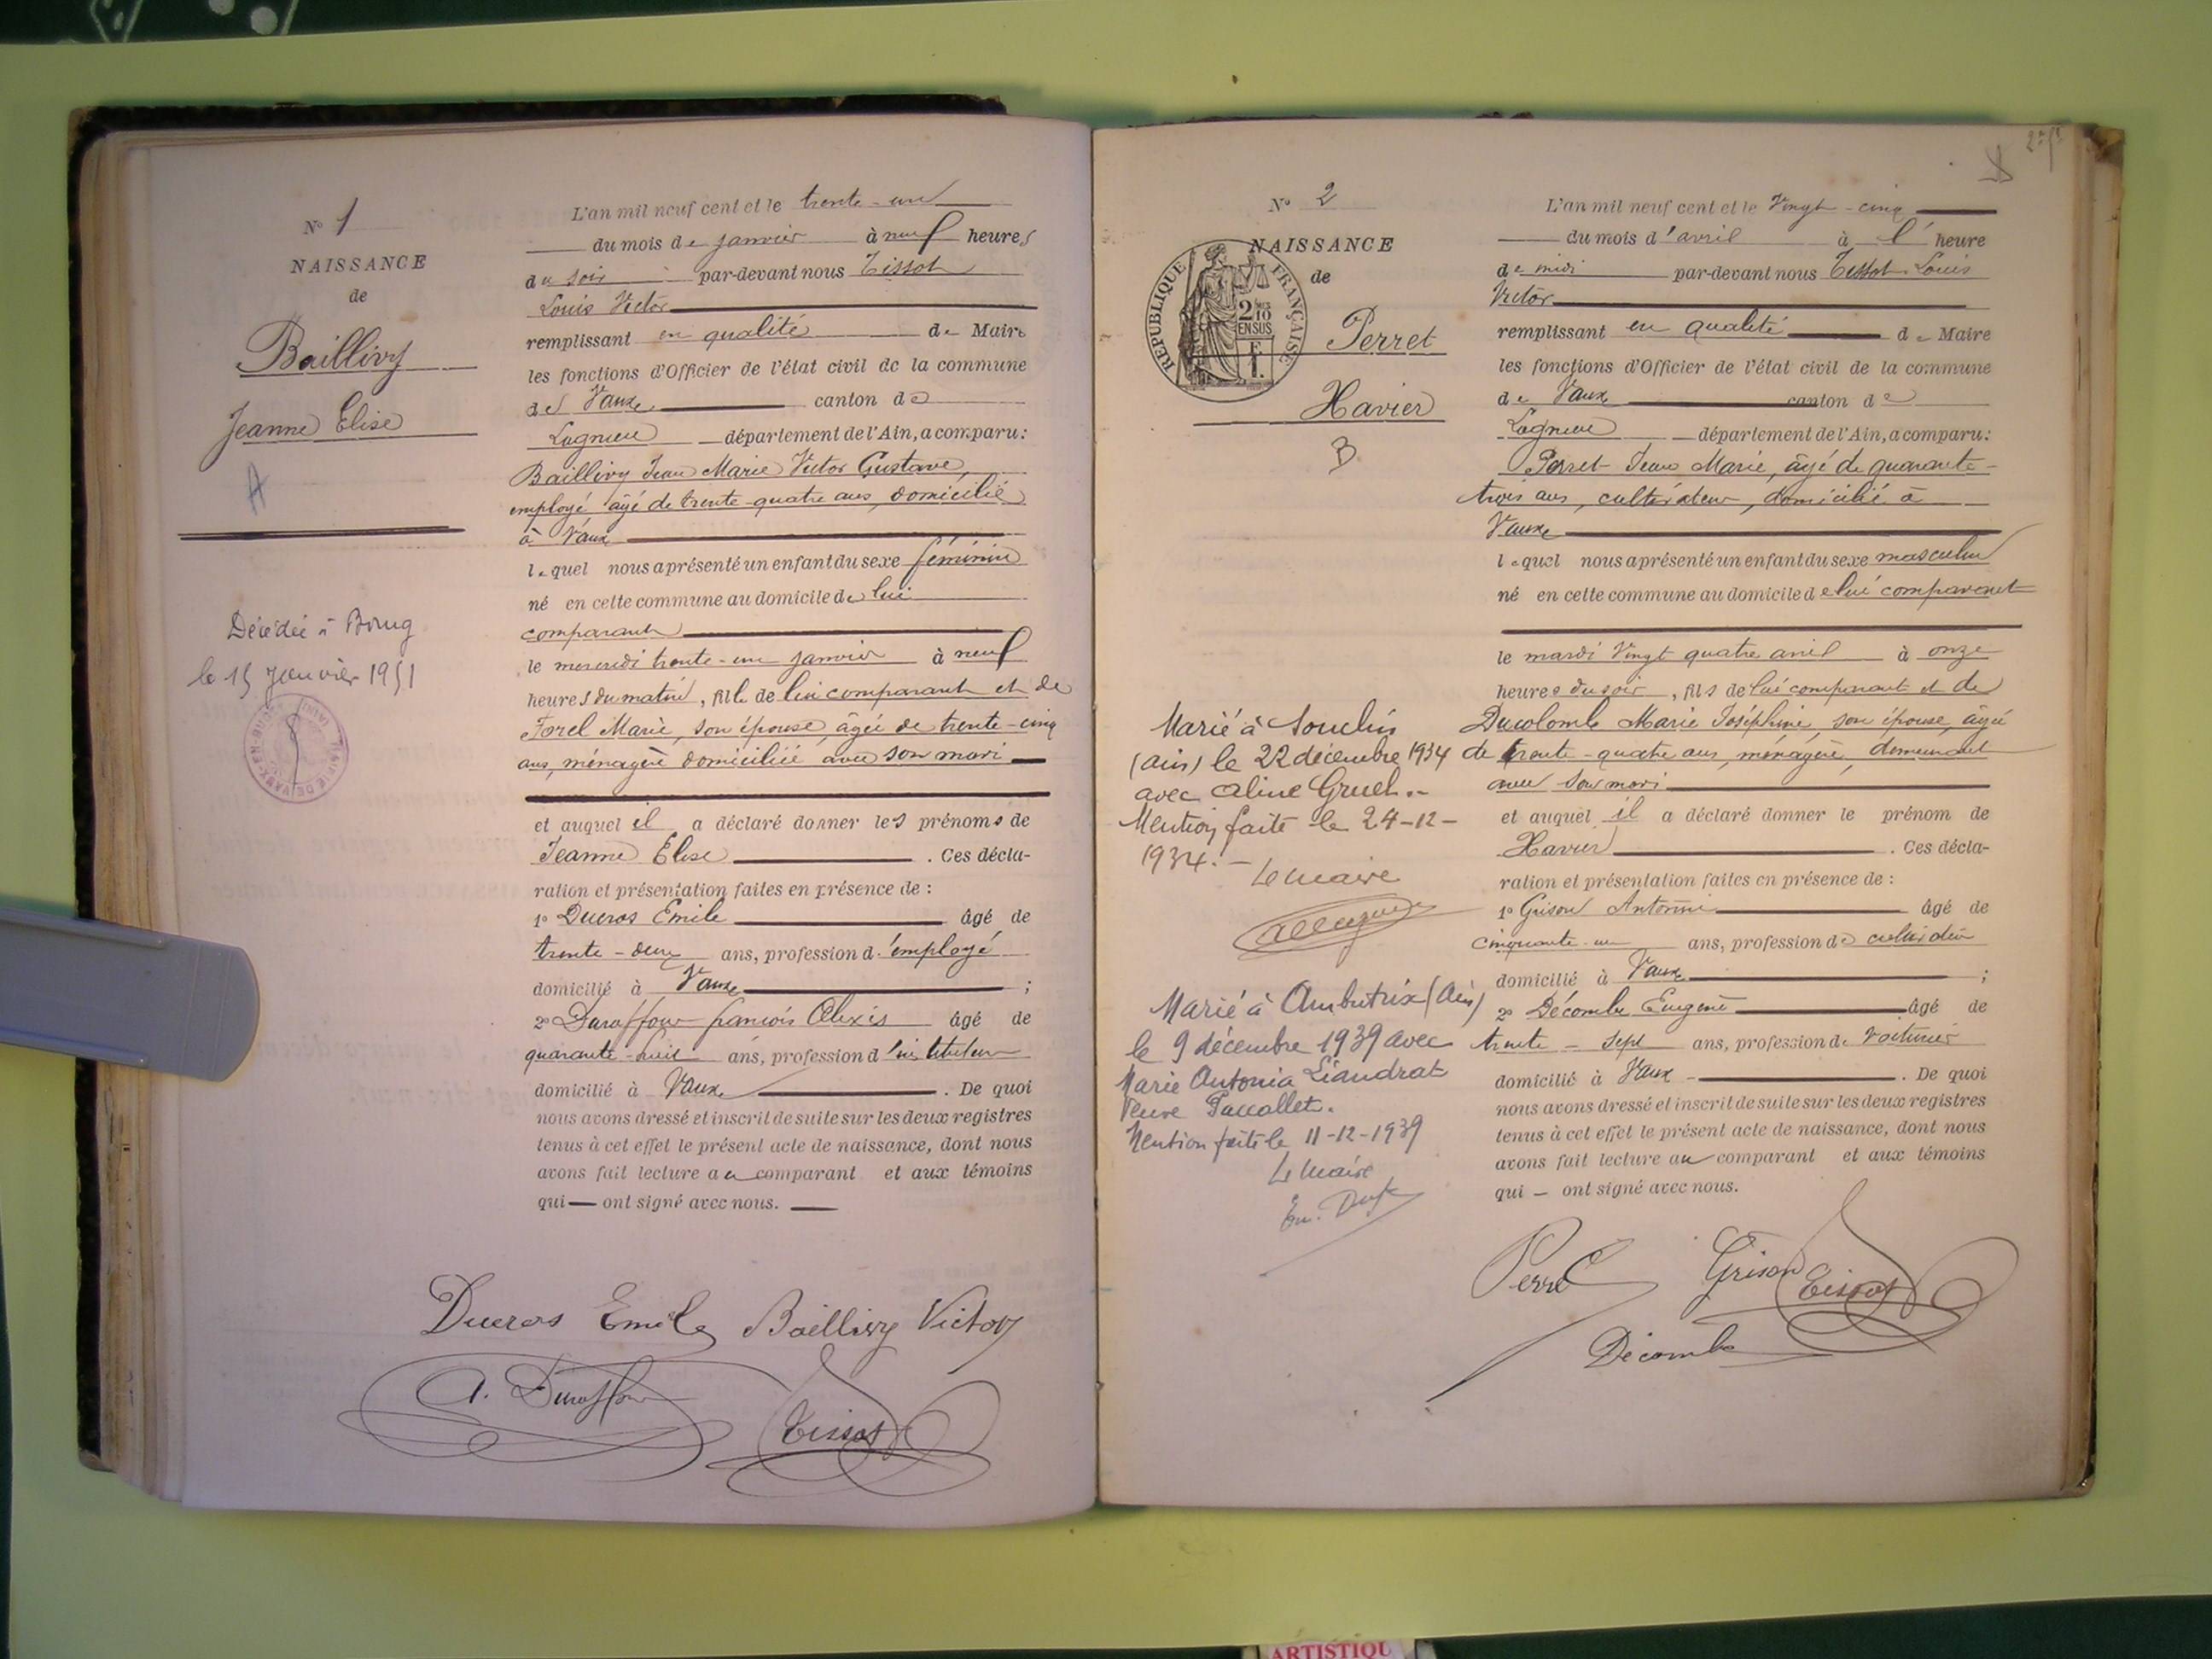 N° 1
NAISSANCE
de
Baillivy
Jeanne Elise
A
Décédée à Bourg
le 15 Janvier 1951
L'an mil neuf cent et le trente-un
du mois de janvier à neuf heures
du soir par-devant nous Tissot
Louis Victor
remplissant en qualité de Maire
les fonctions d'Officier de l'état civil de la commune
de Vaux canton de
Lagnieu département de l'Ain, a comparu:
Baillivy Jean Marie Victor Gustave,
employé âgé de trente-quatre ans, domicilié
à Vaux
lequel nous a présenté un enfant du sexe féminin
né en cette commune au domicile de lui
comparant
le mercredi trente-un janvier à neuf
heures du matin, fille de lui comparant et de
Forel Marie, son épouse, âgée de trente-cinq
ans, ménagère domiciliée avec son mari
et auquel il a déclaré donner les prénoms de
Jeanne Elise . Ces décla-
ration et présentation faites en présence de :
1° Ducros Emile âgé de
trente-deux ans, profession d'employé
domicilié à Vaux ;
2° Duraffour françois Alexis âgé de
quarante-huit ans, profession d'instituteur
domicilié à Vaux . De quoi
nous avons dressé et inscrit de suite sur les deux registres
tenus à cet effet le présent acte de naissance, dont nous
avons fait lecture au comparant et aux témoins
qui — ont signé avec nous.
Ducros Emile Baillivy Victor
A. Duraffour Tissot
N° 2
NAISSANCE
de
RÉPUBLIQUE FRANÇAISE
2/10 EN SUS
Perret
Xavier
B
Marié à Souclin
(Ain) le 22 décembre 1934
avec Aline Gruel.-
Mention faite le 24-12-
1934.-
Le Maire
Marié à Ambutrix (Ain)
le 9 décembre 1939 avec
Marie Antonia Liandrat
Veuve Paccallet.
Mention faite le 11-12-1939
Le Maire
L'an mil neuf cent et le Vingt-cinq
du mois d'avril à l'heure
de midi par-devant nous Tissot Louis
Victor
remplissant en qualité de Maire
les fonctions d'Officier de l'état civil de la commune
de Vaux canton de
Lagnieu département de l'Ain, a comparu:
Perret Jean Marie, âgé de quarante-
trois ans, cultivateur, domicilié à
Vaux
lequel nous a présenté un enfant du sexe masculin
né en cette commune au domicile de lui comparant
le mardi Vingt quatre avril à onze
heures du soir, fils de lui comparant et de
Ducolomb Marie Joséphine, son épouse, âgée
de trente-quatre ans, ménagère, demeurant
avec son mari
et auquel il a déclaré donner le prénom de
Xavier . Ces décla-
ration et présentation faites en présence de :
1° Grison Antonin âgé de
cinquante-un ans, profession de
domicilié à Vaux ;
2° Décombe Eugène âgé de
trente-sept ans, profession de voiturier
domicilié à Vaux . De quoi
nous avons dressé et inscrit de suite sur les deux registres
tenus à cet effet le présent acte de naissance, dont nous
avons fait lecture au comparant et aux témoins
qui — ont signé avec nous.
Perret Grison Tissot
Décombe
ARTISTIQU